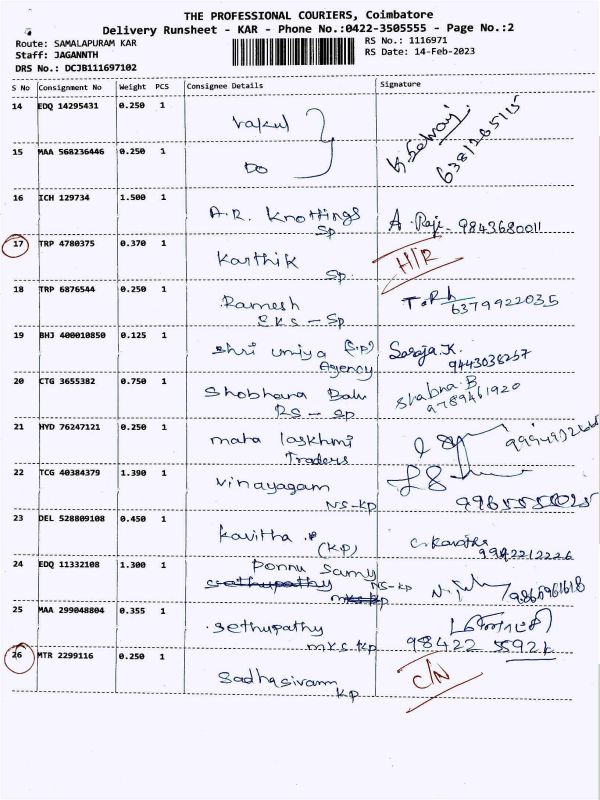 THE PROFESSIONAL COURIERS, Coimbatore
Delivery Runsheet - KAR - Phone No.:0422-3505555 - Page No.:2
Route: SAMALAPURAM KAR
RS No.: 1116971
Staff: JAGANNTH
RS Date: 14-Feb-2023
DRS No.: DCJB111697102
S No Consignment No Weight PCS Consignee Details Signature
14 EDQ 14295431 0.250 1
15 MAA 568236446 0.250 1 Do
16 ICH 129734 1.500 1 A.R. Knottings A. Raji- 9843680011
Sp
17 TRP 4780375 0.370 1 Karthik H/R
Sp.
18 TRP 6876544 0.250 1 Ramesh 6379922035
EKS - Sp
19 BHJ 400010850 0.125 1 Shri uniya (S.p) Saroja.K.
Agency 9443038257
20 CTG 3655382 0.750 1 Shobhana Balu Shabna.B
RS - Sp 9789461920
21 HYD 76247121 0.250 1 maha laskhmi
Traders
22 TCG 40384379 1.390 1 vinayagam
NS-KP
23 DEL 528809108 0.450 1 Kavitha
(KP) 9942212226
24 EDQ 11332108 1.300 1 Ponnu Samy
NS-KP
25 MAA 299048804 0.355 1 Sethupathy
MKS KP 98422
26 MTR 2299116 0.250 1 Sadhasivam C/N
KP